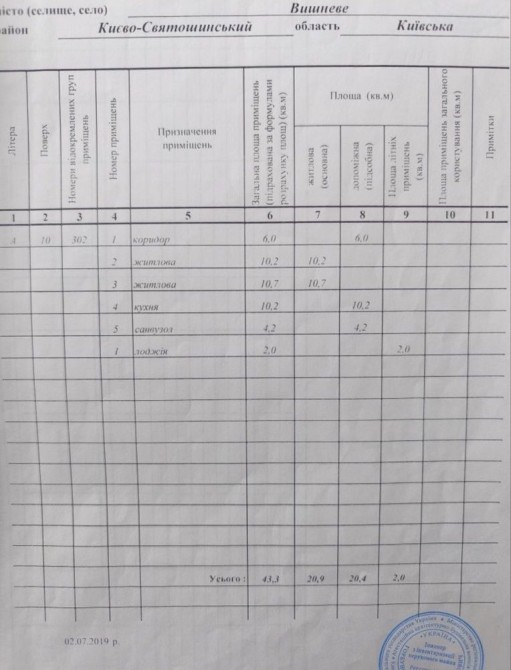 місто (селище, село) Вишневе
район Києво-Святошинський область Київська
Літера
Поверх
Номери відокремлених груп
приміщень
Номер приміщень
Призначення
приміщень
Загальна площа приміщень
(підрахована за формулами
розрахунку площ) (кв.м)
Площа (кв.м)
житлова
(основна)
допоміжна
(підсобна)
Площа літніх
приміщень
(кв.м)
Площа приміщень загального
користування (кв.м)
Примітки
1 2 3 4 5 6 7 8 9 10 11
А 10 302 1 коридор 6,0 6,0
2 житлова 10,2 10,2
3 житлова 10,7 10,7
4 кухня 10,2 10,2
5 санвузол 4,2 4,2
1 лоджія 2,0 2,0
Усього : 43,3 20,9 20,4 2,0
02.07.2019 р.
«УКРАЇНА»